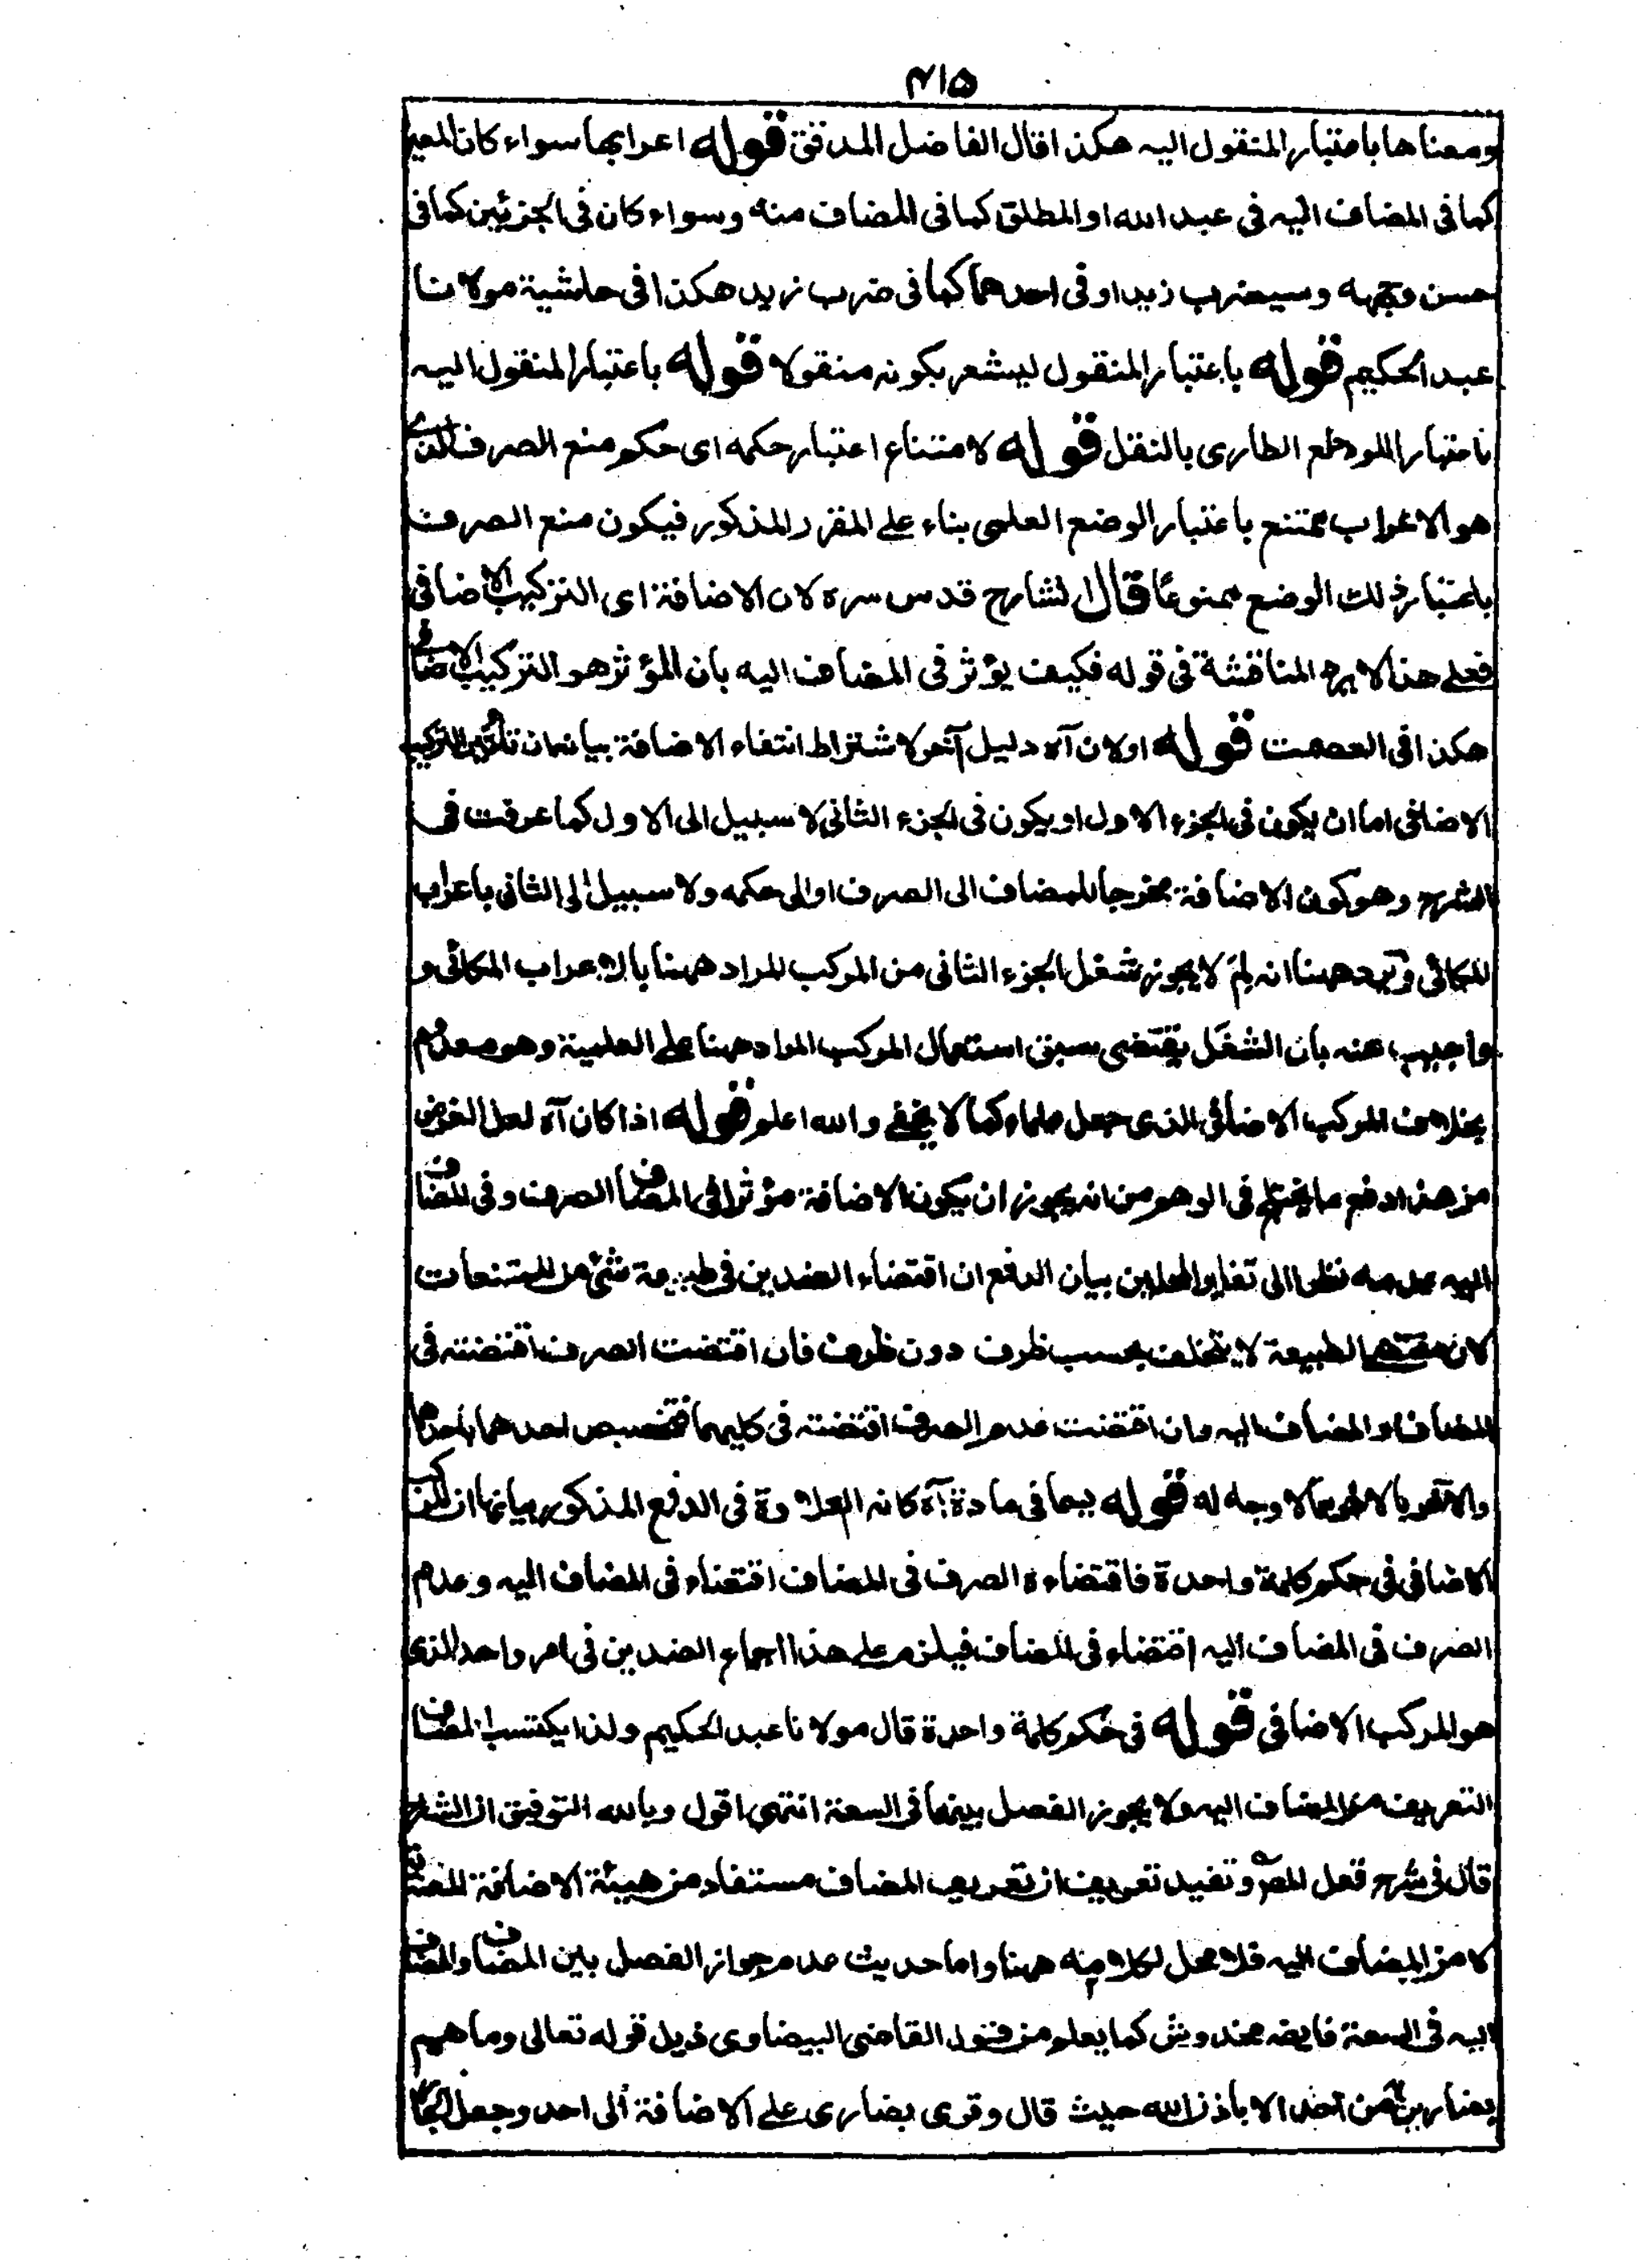 ٤١٥
ومعناها باعتبار المنقول اليه هكذا قال الفاضل المدقق قوله اعرابها سواء كان المعين
كما فى المضاف اليه فى عبد الله او المطلق كما فى المضاف منه وسواء كان فى الجزئين كما فى
حسن وجهه وسيضرب زيد او فى احدهما كما فى ضرب زيد هكذا فى حاشية مولانا
عبد الحكيم قوله باعتبار المنقول ليشعر بكونه منقولا قوله باعتبار المنقول اليه
الطارى بالنقل قوله لامتناع اعتبار حكمه اى حكم منع الصرف الذى
هو الاعراب ممتنع باعتبار الوضع العلمى بناء على المقرر المذكور فيكون منع الصرف
باعتبار ذلك الوضع ممنوعًا قال الشارح قدس سره لان الاضافة اى التركيب الاضافى
فعلى هذا لا يرد المناقشة فى قوله فكيف يؤثر فى المضاف اليه بان المؤثر هو التركيب الاضافى
هكذا فى العصمت قوله اولان آه دليل آخر لاشتراط انتفاء الاضافة بيانه ان تأثير التركيب
الاضافى اما ان يكون فى الجزء الاول او يكون فى الجزء الثانى لا سبيل الى الاول كما عرفت فى
الشرح وهو كون الاضافة مخرجا للمضاف الى الصرف او الى حكمه ولا سبيل الى الثانى باعراب
للحكائى ويرد ههنا انه لِمَ لا يجوز شغل الجزء الثانى من المركب المراد ههنا بالاعراب الحكائى و
واجيب عنه بان الشغل يقتضى سبق استعمال المركب المراد ههنا على العلمية وهو معدوم
بخلاف المركب الاضافى الذى جعل علما كما لا يخفى والله اعلم قوله اذا كان آه لعل الغرض
من هذا دفع ما يختلج فى الوهم من انه يجوز ان يكون الاضافة مؤثرا فى المضاف الصرف وفى المضاف
اليه عدمه نظرا الى تغاير المحلين بيان الدفع ان اقتضاء الضدين فى طبيعة شئ من الممتنعات
لان مقتضى الطبيعة لا يتخلف بحسب ظرف دون ظرف فان اقتضت الصرف اقتضته فى
المضاف والمضاف اليه وان اقتضت عدم الصرف اقتضته فى كليهما فتخصيص احدهما باحدهما
والآخر بالآخر مما لا وجه له قوله سيما فى مادة آه كانه العلاوة فى الدفع المذكور بيانها ان المركب
الاضافى فى حكم كلمة واحدة فاقتضاءه الصرف فى المضاف اقتضاء فى المضاف اليه وعدم
الصرف فى المضاف اليه اقتضاء فى المضاف فيلزم على هذا اجتماع الضدين فى امر واحد الذى
هو المركب الاضافى قوله فى حكم كلمة واحدة قال مولانا عبد الحكيم ولذا يكتسب المضاف
التعريف من المضاف اليه ولا يجوز الفصل بينهما فى السعة انتهى اقول وبالله التوفيق ان الشارح
قال فى شرح قول المصر وتفيد تعريفا ان تعريف المضاف مستفاد من هيئة الاضافة للمضاف
لا من المضاف اليه فلا محل لكلامه ههنا واما حديث عدم جواز الفصل بين المضاف والمضاف
اليه فى السعة فايضه مخدوش كما يعلم من قول القاضى البيضاوى ذيل قوله تعالى وما هم
بضارين به من احد الا باذن الله حيث قال وقرى بضارى على الاضافة الى احد وجعل الجار